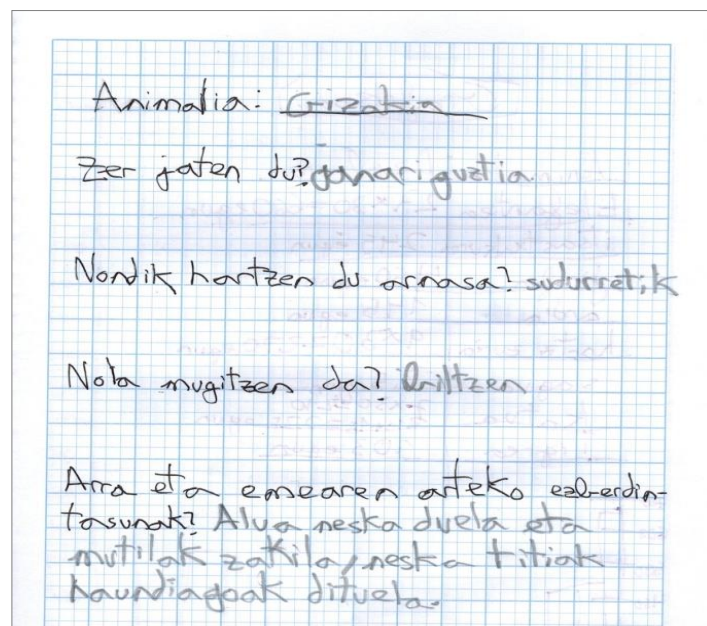 Animalia: Gizakia
Zer jaten du? janari guztia.
Nondik hartzen du arnasa? sudurretik
Nola mugitzen da? Ibiltzen
Arra eta emearen arteko ezberdin-
tasunak? Alua neska duela eta
mutilak zakila, neska titiak
haundiagoak dituela.